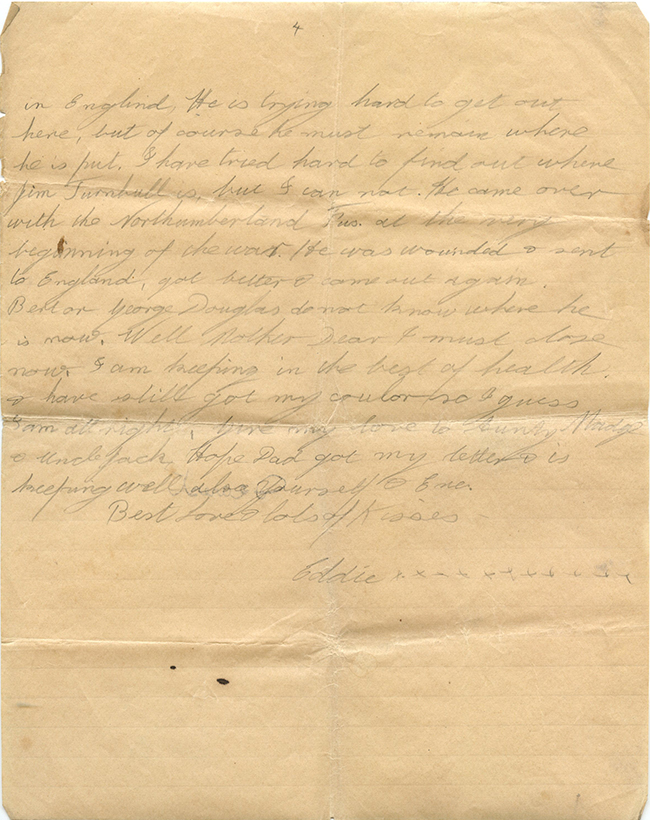 4
in Englind, He is trying hard to get out
here, but of course he must remain where
he is put. I have tried hard to find out where
Jim Turnbull is, but I can not. He came over
with the Northamberland Fus. at the very
beginning of the war. He was wounded & sent
to England, got better & came out again.
Bert or George Douglas do not know where he
is now. Well Mother Dear I must close
now. I am keeping in the best of health.
& have still got my coulor so I guess
I am all right, Give my love to Aunty Madge
& Uncle Jack. Hope Dad got my letter & is
keeping well also Yourself &
Best Love & lots of Kisses
Eddie x x x x x x x x x x x x x